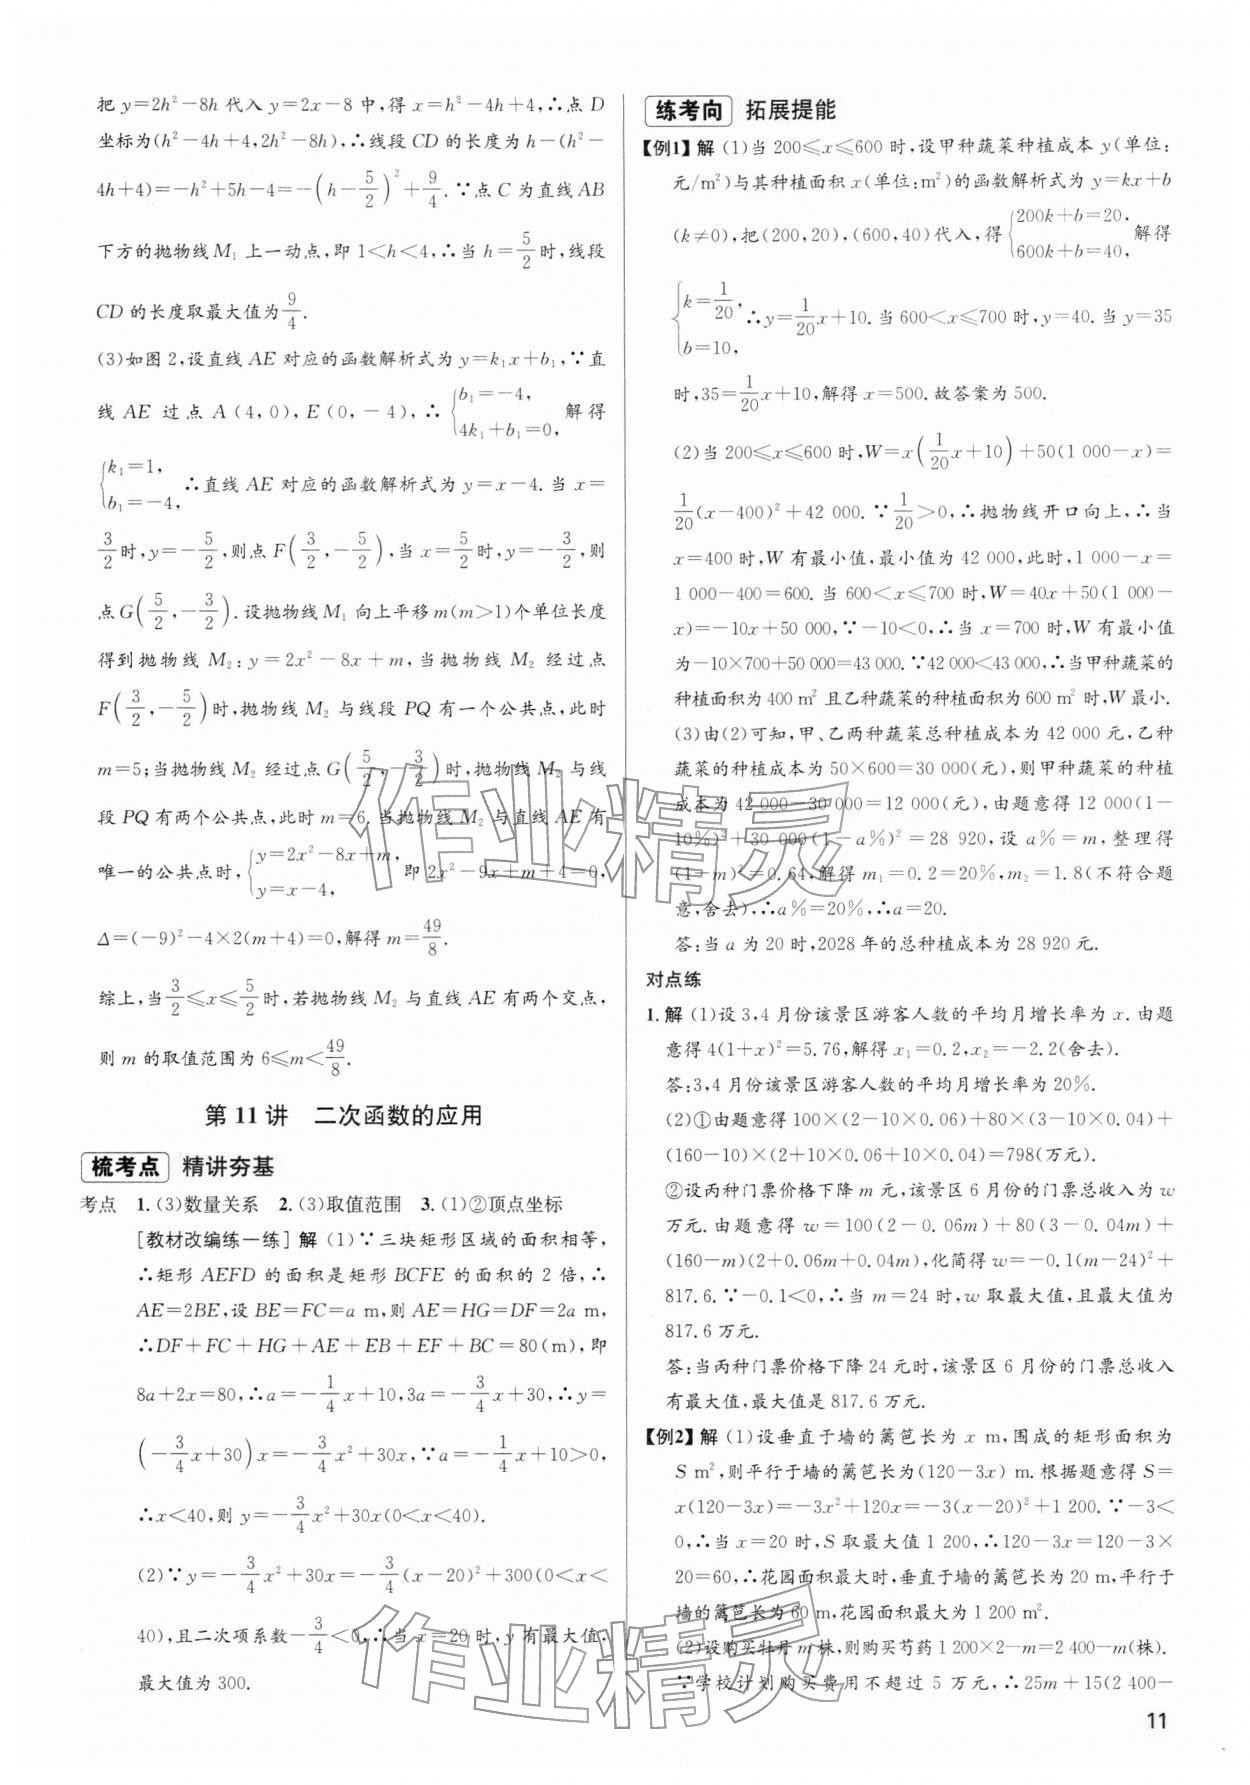 把 y=2h²-8h 代入 y=2x-8 中,得 x=h²-4h+4,∴点 D
坐标为(h²-4h+4,2h²-8h),∴线段 CD 的长度为 h-(h²-
4h+4)=-h²+5h-4=-(h-5/2)²+9/4.∵点 C 为直线 AB
下方的抛物线 M₁ 上一动点,即 1<h<4,∴当 h=5/2时,线段
CD 的长度取最大值为9/4.
(3)如图 2,设直线 AE 对应的函数解析式为 y=k₁x+b₁,∵直
线 AE 过点 A(4,0),E(0,-4),∴{b₁=-4, 4k₁+b₁=0, 解得
{k₁=1, b₁=-4, ∴直线 AE 对应的函数解析式为 y=x-4.当 x=
3/2时,y=-5/2,则点 F(3/2,-5/2),当 x=5/2时,y=-3/2,则
点 G(5/2,-3/2).设抛物线 M₁ 向上平移 m(m>1)个单位长度
得到抛物线 M₂:y=2x²-8x+m,当抛物线 M₂ 经过点
F(3/2,-5/2)时,抛物线 M₂ 与线段 PQ 有一个公共点,此时
m=5;当抛物线 M₂ 经过点 G(5/2,-3/2)时,抛物线 M₂ 与线
段 PQ 有两个公共点,此时 m=6.当抛物线 M₂ 与直线 AE 有
唯一的公共点时,{y=2x²-8x+m, y=x-4, 即 2x²-9x+m+4=0,
Δ=(-9)²-4×2(m+4)=0,解得 m=49/8.
综上,当3/2≤x≤5/2时,若抛物线 M₂ 与直线 AE 有两个交点,
则 m 的取值范围为 6≤m<49/8.
第 11 讲 二次函数的应用
梳考点 精讲夯基
考点 1.(3)数量关系 2.(3)取值范围 3.(1)②顶点坐标
[教材改编练一练] 解 (1)∵三块矩形区域的面积相等,
∴矩形 AEFD 的面积是矩形 BCFE 的面积的 2 倍,∴
AE=2BE,设 BE=FC=a m,则 AE=HG=DF=2a m,
∴DF+FC+HG+AE+EB+EF+BC=80(m),即
8a+2x=80,∴a=-1/4x+10,3a=-3/4x+30,∴y=
(-3/4x+30)x=-3/4x²+30x,∵a=-1/4x+10>0,
∴x<40,则 y=-3/4x²+30x(0<x<40).
(2)∵y=-3/4x²+30x=-3/4(x-20)²+300(0<x<
40),且二次项系数-3/4<0,∴当 x=20 时,y 有最大值,
最大值为 300.
练考向 拓展提能
【例1】解 (1)当 200≤x≤600 时,设甲种蔬菜种植成本 y(单位:
元/m²)与其种植面积 x(单位:m²)的函数解析式为 y=kx+b
(k≠0),把(200,20),(600,40)代入,得{200k+b=20, 600k+b=40, 解得
{k=1/20, b=10, ∴y=1/20x+10.当 600<x≤700 时,y=40.当 y=35
时,35=1/20x+10,解得 x=500.故答案为 500.
(2)当 200≤x≤600 时,W=x(1/20x+10)+50(1 000-x)=
1/20(x-400)²+42 000.∵1/20>0,∴抛物线开口向上,∴当
x=400 时,W 有最小值,最小值为 42 000,此时,1 000-x=
1 000-400=600.当 600<x≤700 时,W=40x+50(1 000-
x)=-10x+50 000,∵-10<0,∴当 x=700 时,W 有最小值
为-10×700+50 000=43 000.∵42 000<43 000,∴当甲种蔬菜的
种植面积为 400 m² 且乙种蔬菜的种植面积为 600 m² 时,W 最小.
(3)由(2)可知,甲、乙两种蔬菜总种植成本为 42 000 元,乙种
蔬菜的种植成本为 50×600=30 000(元),则甲种蔬菜的种植
成本为 42 000-30 000=12 000(元),由题意得 12 000(1-
10%)²+30 000(1-a%)²=28 920,设 a%=m,整理得
(1-m)²=0.64,解得 m₁=0.2=20%,m₂=1.8(不符合题
意,舍去),∴a%=20%,∴a=20.
答:当 a 为 20 时,2028 年的总种植成本为 28 920 元.
对点练
1.解 (1)设 3,4 月份该景区游客人数的平均月增长率为 x.由题
意得 4(1+x)²=5.76,解得 x₁=0.2,x₂=-2.2(舍去).
答:3,4 月份该景区游客人数的平均月增长率为 20%.
(2)①由题意得 100×(2-10×0.06)+80×(3-10×0.04)+
(160-10)×(2+10×0.06+10×0.04)=798(万元).
②设两种门票价格下降 m 元,该景区 6 月份的门票总收入为 w
万元.由题意得 w=100(2-0.06m)+80(3-0.04m)+
(160-m)(2+0.06m+0.04m),化简得 w=-0.1(m-24)²+
817.6.∵-0.1<0,∴当 m=24 时,w 取最大值,且最大值为
817.6 万元.
答:当两种门票价格下降 24 元时,该景区 6 月份的门票总收入
有最大值,最大值是 817.6 万元.
【例2】解 (1)设垂直于墙的篱笆长为 x m,围成的矩形面积为
S m²,则平行于墙的篱笆长为(120-3x) m.根据题意得 S=
x(120-3x)=-3x²+120x=-3(x-20)²+1 200.∵-3<
0,∴当 x=20 时,S 取最大值 1 200,∴120-3x=120-3×
20=60,∴花园面积最大时,垂直于墙的篱笆长为 20 m,平行于
墙的篱笆长为 60 m,花园面积最大为 1 200 m².
(2)设购买牡丹 m 株,则购买芍药 1 200×2-m=2 400-m(株).
∵学校计划购买费用不超过 5 万元,∴25m+15(2 400-
作业精灵
作业精灵
11